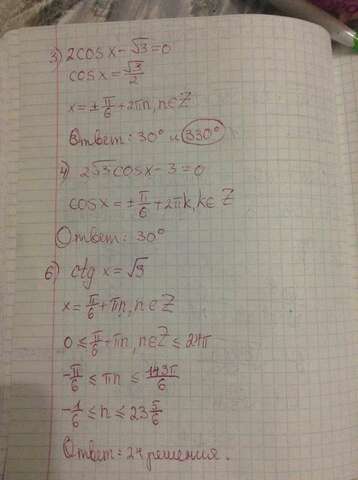 3) 2cosx - √3 = 0
cosx = √3/2
x = ± π/6 + 2πn, n∈Z
Ответ: 30° и 330°
4) 2√3cosx - 3 = 0
cosx = ± π/6 + 2πk, k∈Z
Ответ: 30°
6) ctg x = √3
x = π/6 + πn, n∈Z
0 ≤ π/6 + πn, n∈Z ≤ 24π
-π/6 ≤ πn ≤ 143π/6
-1/6 ≤ n ≤ 23 5/6
Ответ: 24 решения.